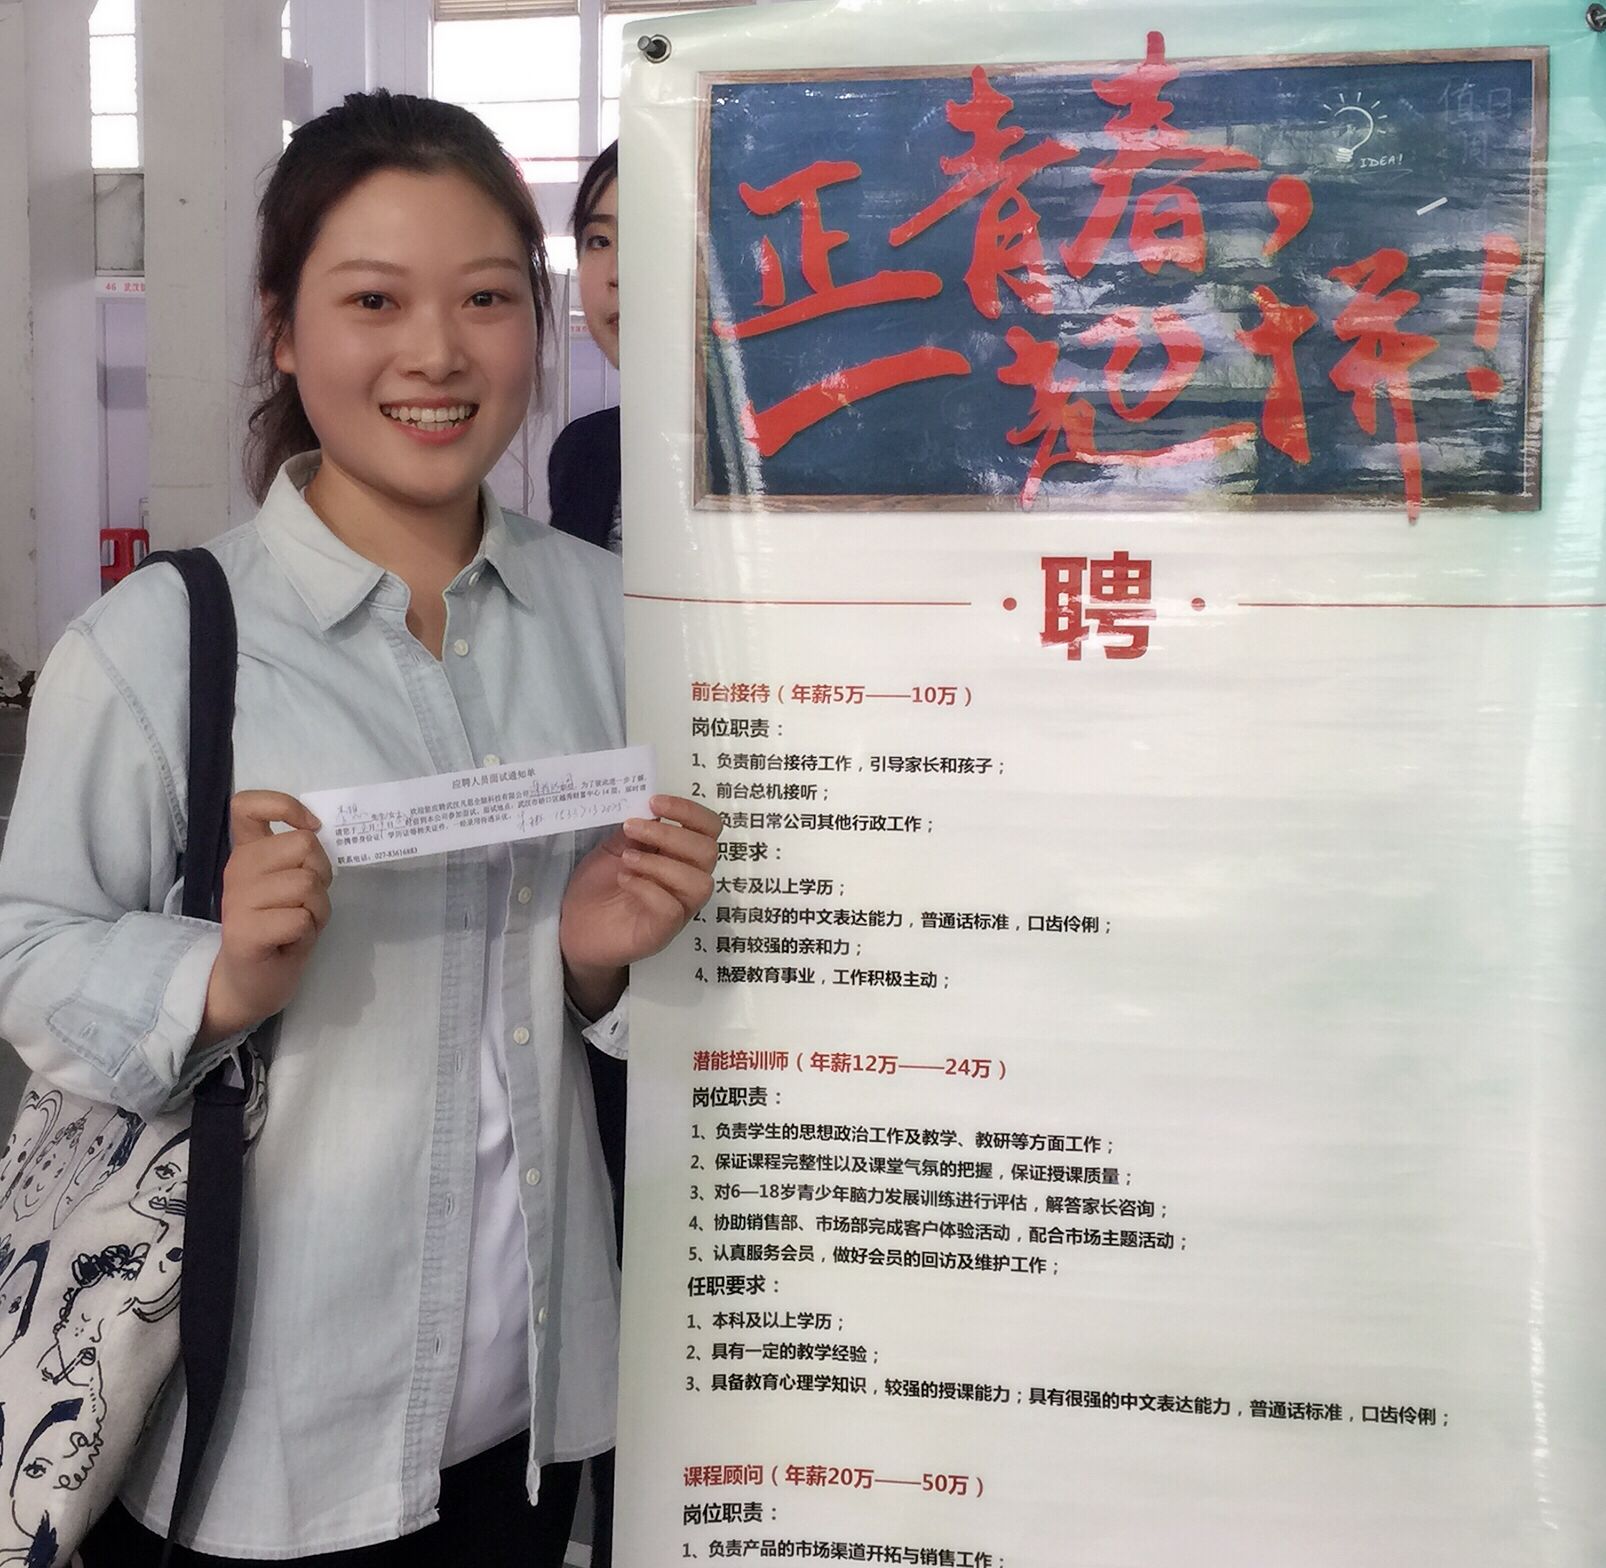 正青春，
一起拼！
IDEA!
值日
46 武汉
聘
前台接待（年薪5万——10万）
岗位职责：
1、负责前台接待工作，引导家长和孩子；
2、前台总机接听；
负责日常公司其他行政工作；
职要求：
大专及以上学历；
2、具有良好的中文表达能力，普通话标准，口齿伶俐；
3、具有较强的亲和力；
4、热爱教育事业，工作积极主动；
潜能培训师（年薪12万——24万）
岗位职责：
1、负责学生的思想政治工作及教学、教研等方面工作；
2、保证课程完整性以及课堂气氛的把握，保证授课质量；
3、对6—18岁青少年脑力发展训练进行评估，解答家长咨询；
4、协助销售部、市场部完成客户体验活动，配合市场主题活动；
5、认真服务会员，做好会员的回访及维护工作；
任职要求：
1、本科及以上学历；
2、具有一定的教学经验；
3、具备教育心理学知识，较强的授课能力；具有很强的中文表达能力，普通话标准，口齿伶俐；
课程顾问（年薪20万——50万）
岗位职责：
1、负责产品的市场渠道开拓与销售工作；
应聘人员面试通知单
先生/女士，欢迎您应聘武汉凡思全脑科技有限公司 为了彼此进一步了解，
请您于 前到本公司参加面试。面试地点：武汉市硚口区越秀财富中心14层，届时请
你携带身份证、学历证等相关证件，一经录用待遇从优。
联系电话：027-83616883